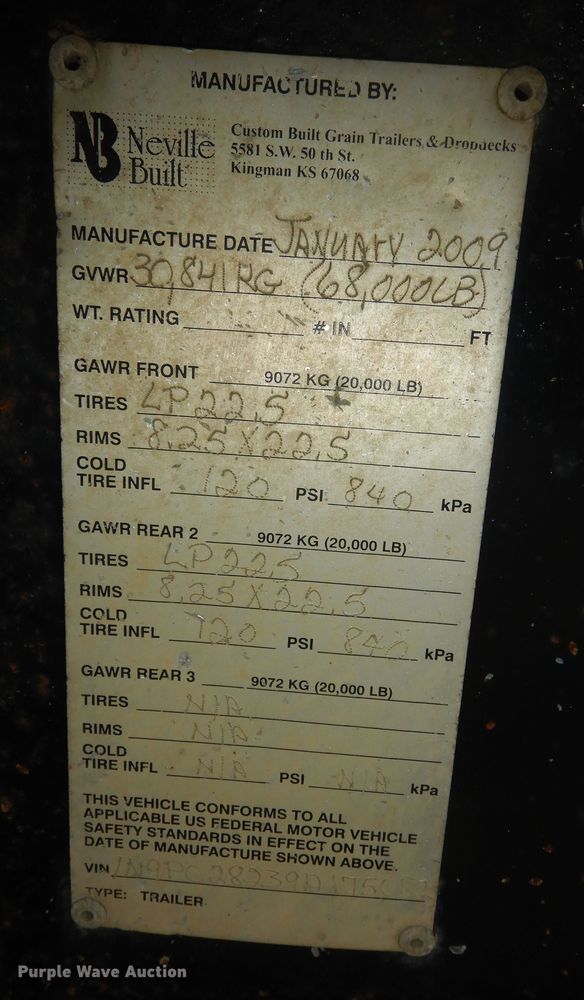 MANUFACTURED BY:
NB Neville Built
Custom Built Grain Trailers & Dropdecks
5581 S.W. 50 th St.
Kingman KS 67068
MANUFACTURE DATE JANUARY 2009
GVWR 30,841 KG (68,000 LB)
WT. RATING # IN FT
GAWR FRONT 9072 KG (20,000 LB)
TIRES LP 22.5
RIMS 8.25 X 22.5
COLD
TIRE INFL 120 PSI 840 kPa
GAWR REAR 2 9072 KG (20,000 LB)
TIRES LP 22.5
RIMS 8.25 X 22.5
COLD
TIRE INFL 120 PSI 840 kPa
GAWR REAR 3 9072 KG (20,000 LB)
TIRES N/A
RIMS N/A
COLD
TIRE INFL N/A PSI N/A kPa
THIS VEHICLE CONFORMS TO ALL
APPLICABLE US FEDERAL MOTOR VEHICLE
SAFETY STANDARDS IN EFFECT ON THE
DATE OF MANUFACTURE SHOWN ABOVE.
VIN
TYPE: TRAILER
Purple Wave Auction